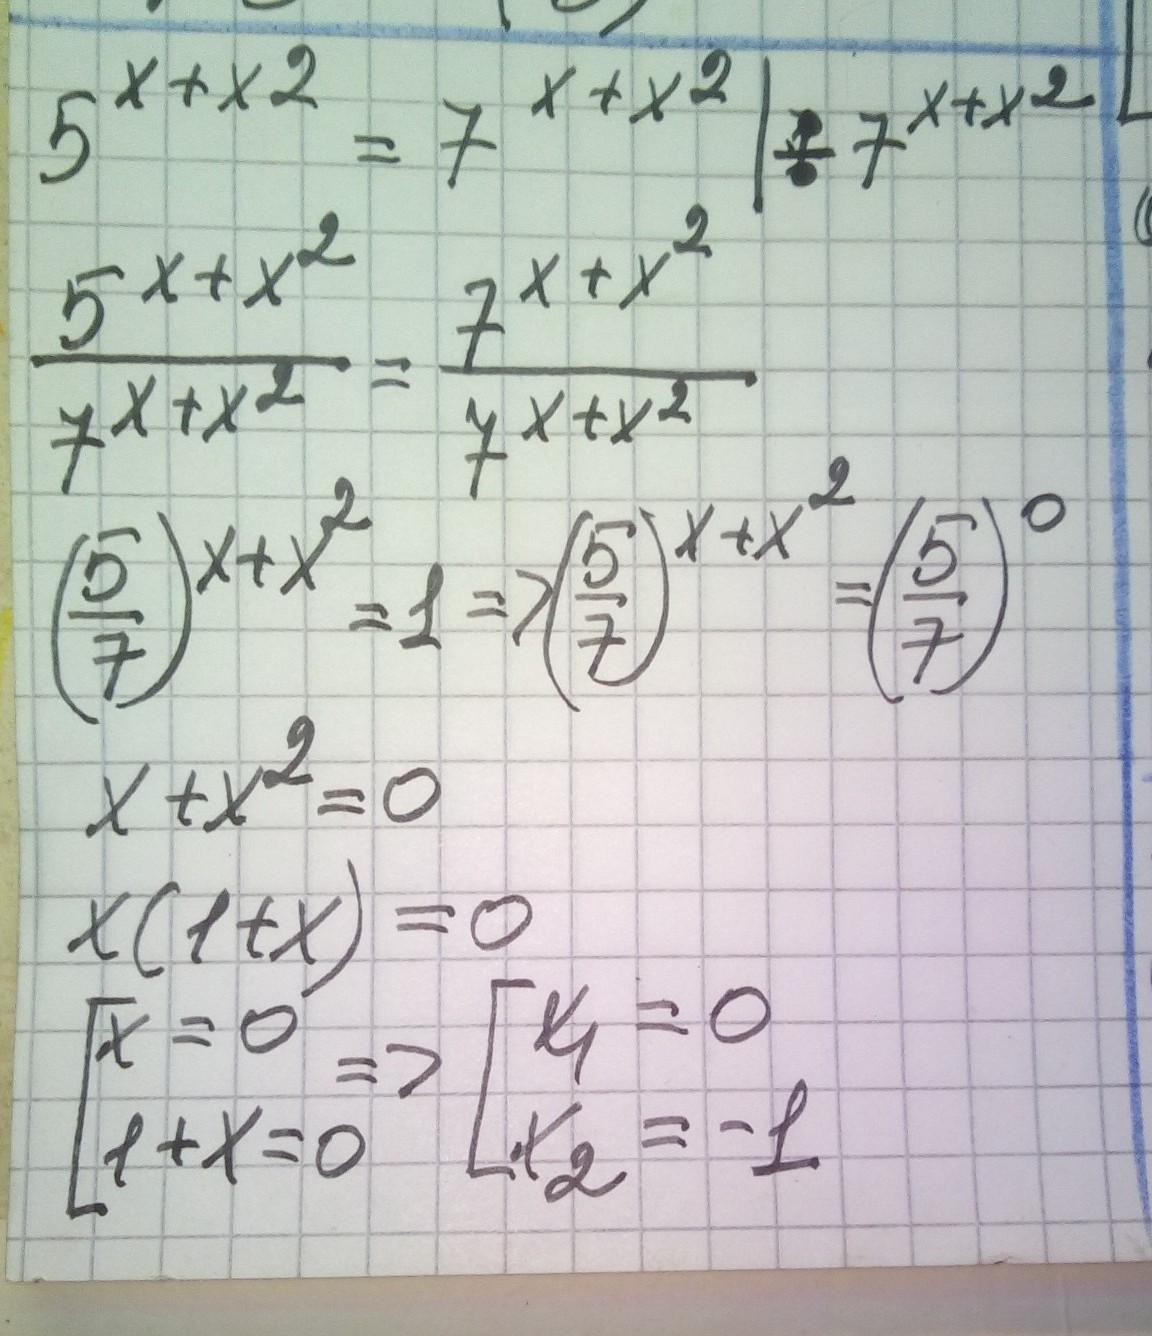 5^{x+x2} = 7^{x+x2} | ÷ 7^{x+x2}
\frac{5^{x+x^2}}{7^{x+x^2}} = \frac{7^{x+x^2}}{7^{x+x^2}}
(\frac{5}{7})^{x+x^2} = 1 => (\frac{5}{7})^{x+x^2} = (\frac{5}{7})^0
x+x^2=0
x(1+x)=0
[x=0 => [x_1=0
[1+x=0 [x_2=-1